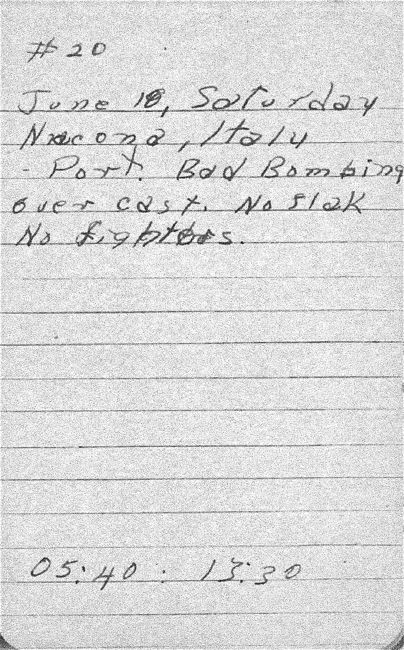 # 20
June 18, Saturday
Nncona, Italy
- Port. Bad Bombing
over cast. No flak
No fighters.
05:40 : 13:30